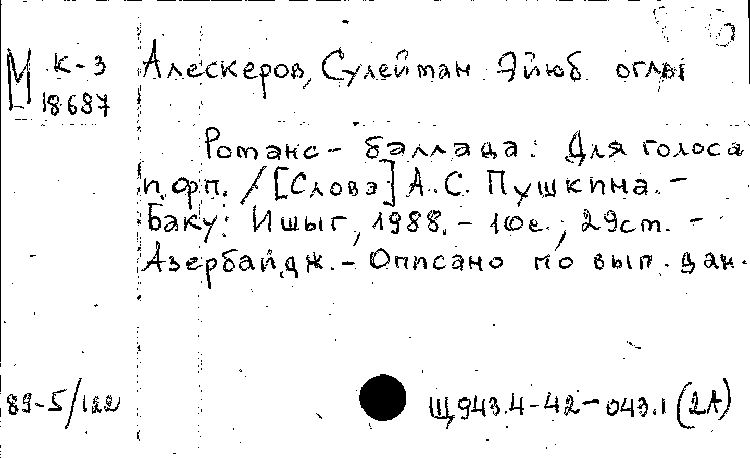 М к-3 Алескеров, Сулейман Эйюб оглы
18687
Романс-баллада: Для голоса
п. фп. / [Слова] А. С. Пушкина. -
Баку: Ишыг, 1988. - 10с.; 29см. -
Азербайдж. - Описано по вып. дан.
89-5/122 Щ943.4-42-043.1 (2А)